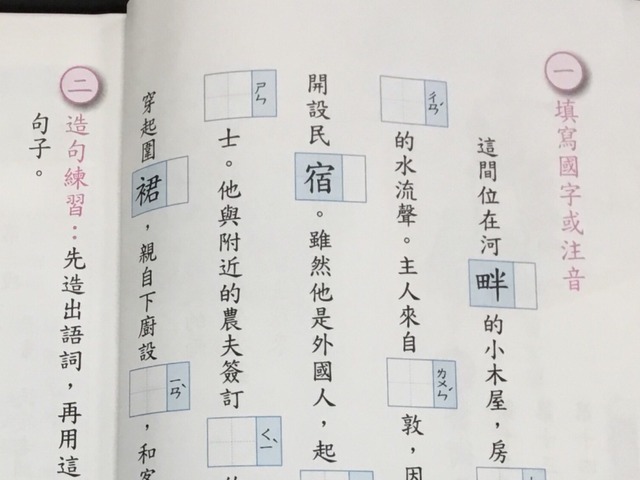 一 填寫國字或注音
這間位在河畔的小木屋，房
ㄔㄢˊ的水流聲。主人來自ㄌㄨㄣˊ敦，因
開設民宿。雖然他是外國人，起
ㄕㄣ士。他與附近的農夫簽訂ㄑㄧˋ
穿起圍裙，親自下廚設ㄧㄢˋ，和客
二 造句練習：先造出語詞，再用這
句子。